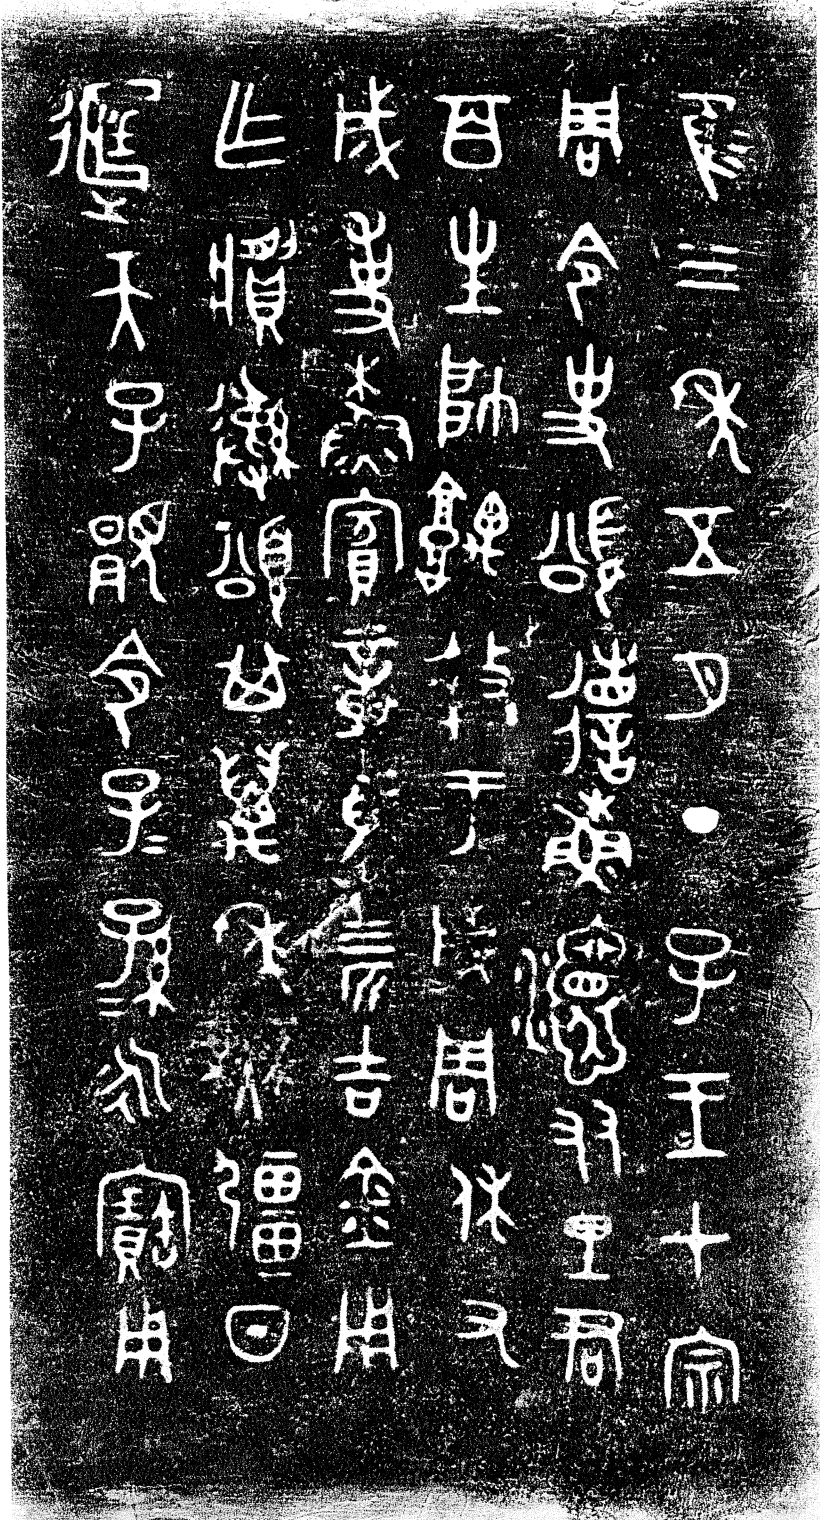 隹三年五月丁巳王才宗
周令史頌省穌友里君
百生帥堣盩于成周休又
成事穌賓章馬四匹吉金用
乍䵼彝頌其萬年無疆日
遟天子顯令子子孫孫永寶用